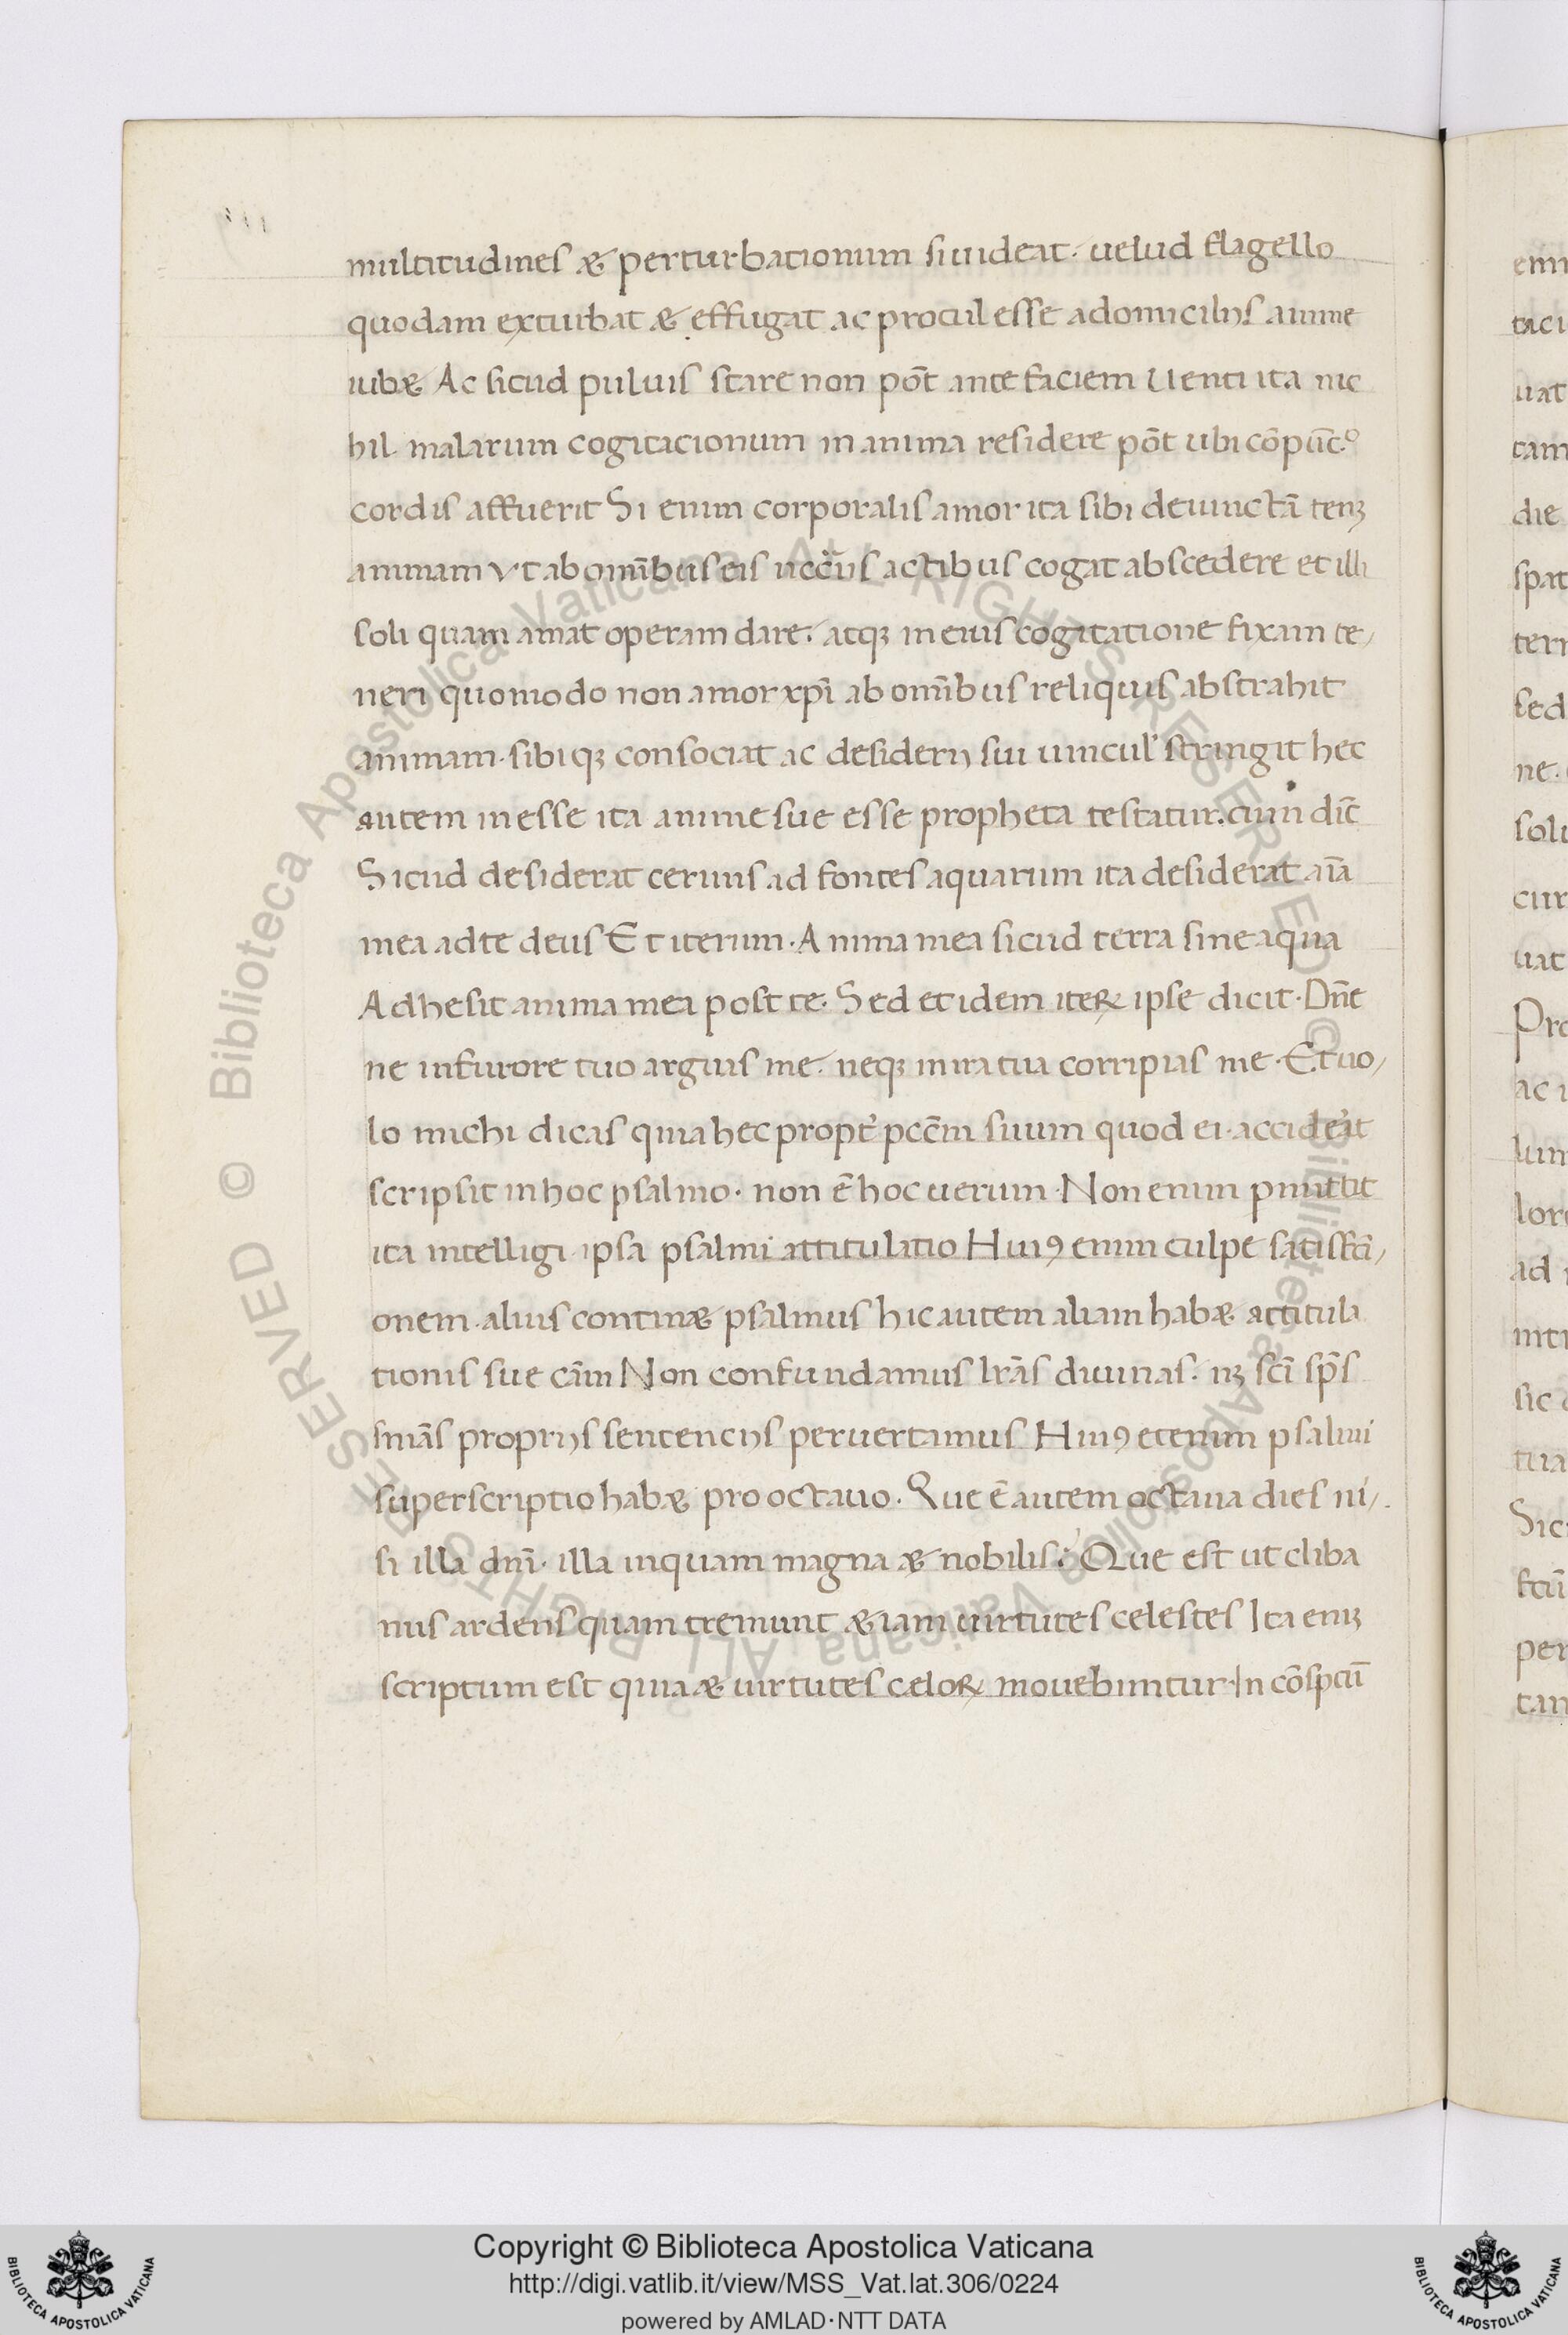 multitudines & perturbationum si uideat. uelud flagello
quodam exturbat & effugat ac procul esse adomicilijs anime
iub& Ac sicud puluis stare non pōt ante faciem Uenti ita nic
hil malarum cogitacionum in anima residere pōt ubi cōpūct.º
cordis affuerit Si enim corporalis amor ita sibi deuinctā tenꝫ
animam vt ab omībus eis nccīis actibus cogat abscedere et illi
soli quam amat operam dare. atqꝫ in eius cogitatione fixam te/
neri quomodo non amor xpī ab omībus reliquis abstrahit
animam. sibiqꝫ consociat ac desiderij sui uincul' stringit hec
autem inesse ita anime sue esse propheta testatur. cum dīc
Sicud desiderat ceruus ad fontes aquarum ita desiderat aīa
mea ad te deus Et iterum. Anima mea sicud terra sine aqua
Adhesit anima mea post te. Sed et idem iteꝝ ipse dicit. Dn̄e
ne in furore tuo arguas me. neqꝫ in ira tua corripias me. Et uo/
lo michi dicas quia hec propt' pccm̄ suum quod ei acciderit
scripsit in hoc psalmo. non ē hoc uerum. Non enim pmittit
ita intelligi ipsa psalmi attitulatio Huiꝯ enim culpe satisfcī/
onem. alius contin& psalmus hic autem aliam hab& attitula
tionis sue cām Non confundamus lrās diuinas. nꝫ scī sp̄s
sniās proprijs sentencijs peruertamus Huiꝯ etenim psalmi
superscriptio hab& pro octauo. Que ē autem octaua dies ni/.
si illa dnī. illa inquam magna & nobilis? Que est ut cliba
nus ardens quam tremunt & iam uirtutes celestes Ita enꝫ
scriptum est quia & uirtutes celoꝝ mouebuntur. In cōspcū
Copyright © Biblioteca Apostolica Vaticana
http://digi.vatlib.it/view/MSS_Vat.lat.306/0224
powered by AMLAD·NTT DATA